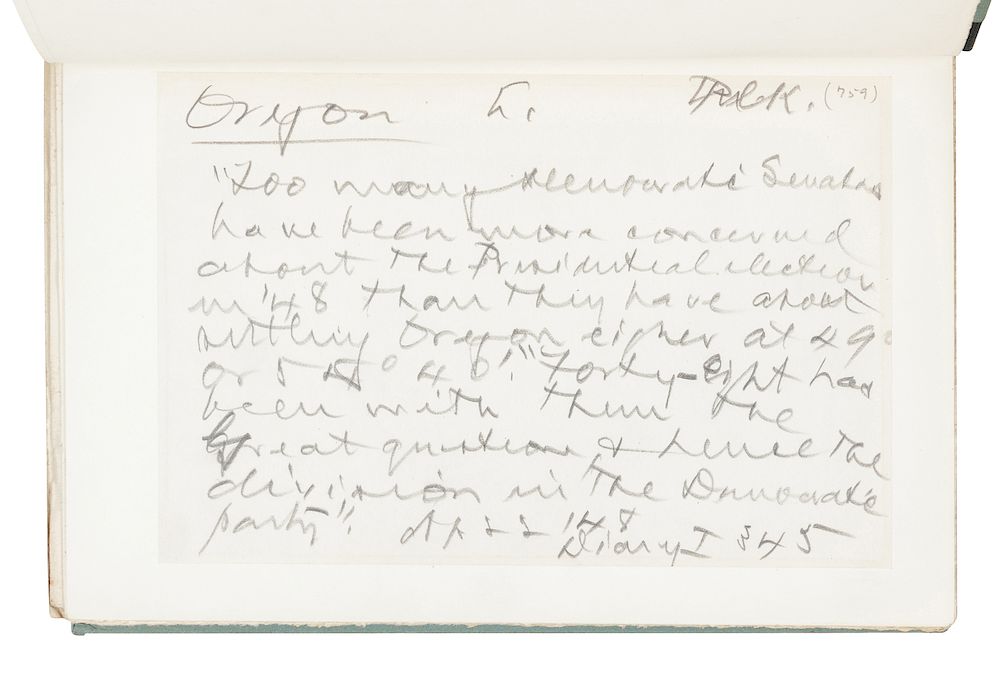 Oregon h. Polk. (759)
"Too many Democratic Senators
have been more concerned
about the Presidential election
in '48 than they have about
settling Oregon either at 49°
or 54° 40'." "Forty-eight has
been with them the
Great question & hence the
division in the Democratic
party". Ap 22 '48
Diary I 345